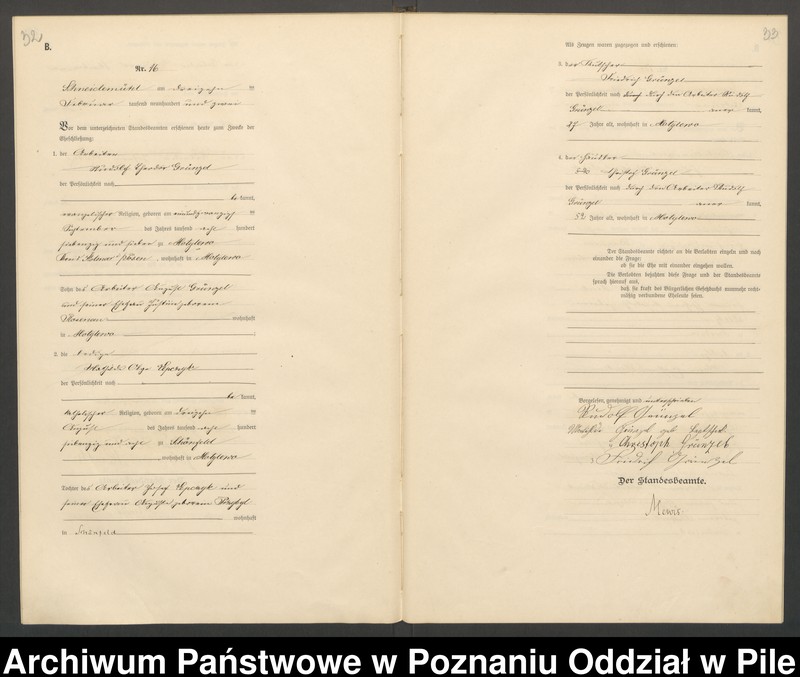 32
B.
Nr. 16
Schneidemühl am dreizehn ten
Februar tausend neunhundert und zwei
Vor dem unterzeichneten Standesbeamten erschienen heute zum Zwecke der
Eheschließung:
1. der Arbeiter
Theodor Grünzel
der Persönlichkeit nach
be kannt,
evangelischer Religion, geboren am einundzwanzig ten
September des Jahres tausend acht hundert
siebenzig und sieben zu Motylewo
, wohnhaft in Motylewo
Sohn des Arbeiter August Grünzel
und seiner Ehefrau geborene
wohnhaft
in Motylewo
2. die
Mathilde Olga
der Persönlichkeit nach
be kannt,
katholischer Religion, geboren am dreizehn ten
August des Jahres tausend acht hundert
siebenzig und acht zu Schönfeld
, wohnhaft in Motylewo
Tochter des Arbeiter Josef
seiner Ehefrau Auguste geborene
wohnhaft
in Schönfeld
33
Als Zeugen waren zugezogen und erschienen:
3. der Kutscher
Friedrich Grünzel
der Persönlichkeit nach durch den Arbeiter Rudolf
Grünzel aner kannt,
27 Jahre alt, wohnhaft in Motylewo
4. der Händler
Christof Grünzel
der Persönlichkeit nach durch den Arbeiter Rudolf
Grünzel aner kannt,
52 Jahre alt, wohnhaft in Motylewo
Der Standesbeamte richtete an die Verlobten einzeln und nach
einander die Frage:
ob sie die Ehe mit einander eingehen wollen.
Die Verlobten bejahten diese Frage und der Standesbeamte
sprach hierauf aus,
daß sie kraft des Bürgerlichen Gesetzbuchs nunmehr recht-
mäßig verbundene Eheleute seien.
Vorgelesen, genehmigt und unterschrieben
Rudolf Grünzel
Grünzel geb
Christoph Grünzel
Friedrich Grünzel
Der Standesbeamte.
Mewis.
Archiwum Państwowe w Poznaniu Oddział w Pile